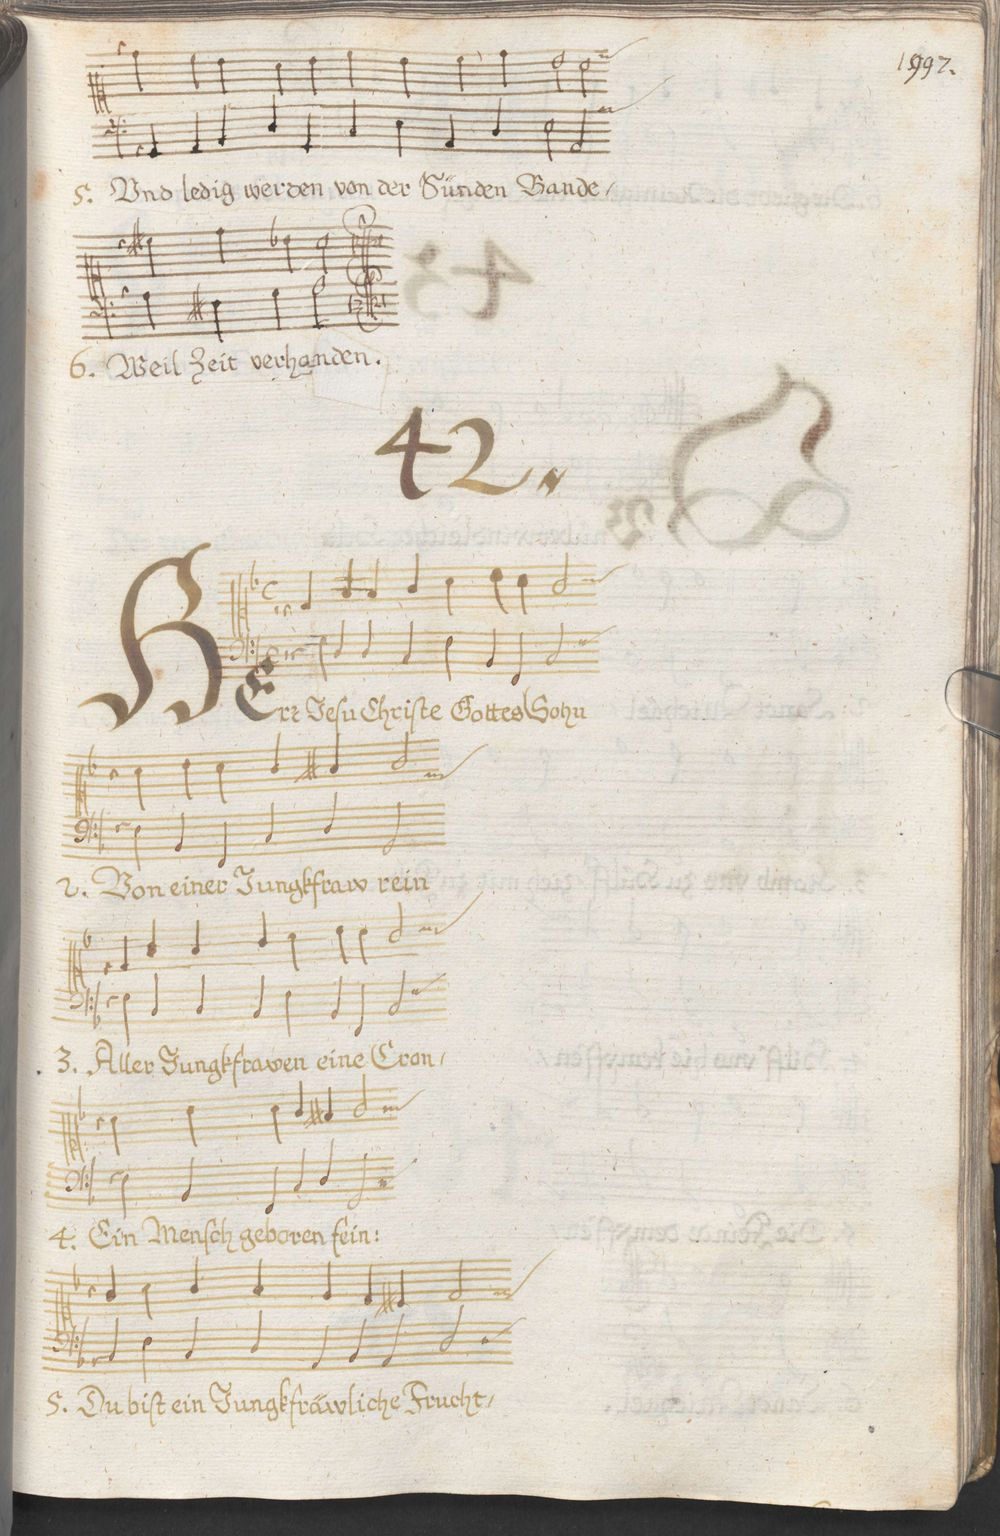 1997.
5. Vnd ledig werden von der Sünden Bande/
6. Weil Zeit verhanden.
42.
HErr Jesu Christe Gottes Sohn
2. Von einer Jungkfraw rein
3. Aller Jungkfrawen eine Cron/
4. Ein Mensch geboren fein:
5. Du bist ein Jungkfräwliche Frucht/